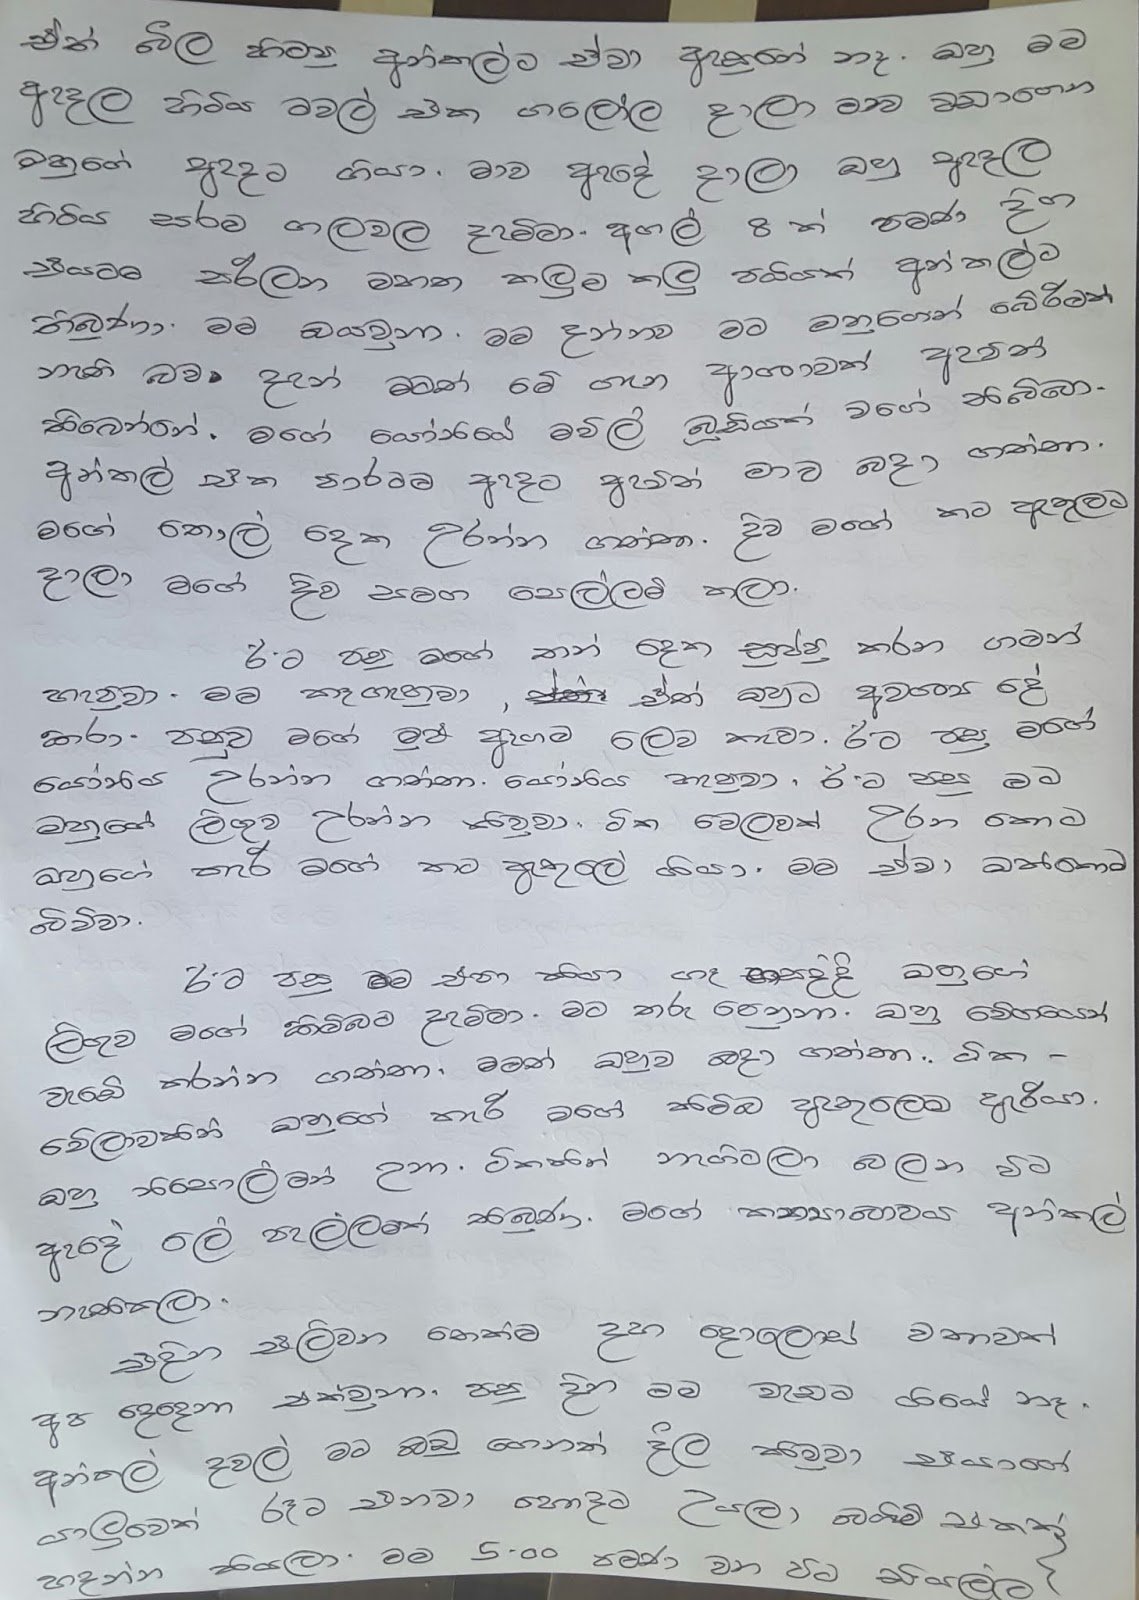 ඒත් බීල හිටපු අන්කල්ට ඒවා ඇහුනේ නෑ. ඔහු මම
ඇඳල හිටිය ටවල් එක ගලෝල දාලා මාව වඩාගෙන
ඔහුගේ ඇඳට ගියා. මාව ඇඳේ දාලා ඔහු ඇඳල
හිටිය සරම ගලවල දැම්මා. අගල් 8 ක් පමණ දිග
මහත කලුම කලු පයියක් අන්කල්ට
තිබුණා. මම බයවුනා. මම දන්නව මට ඔහුගෙන් බේරීමක්
නැති බව. දැන් මටත් මේ ගැන ආසාවක් ඇවිත්
තිබෙන්නේ. මගේ යෝනියේ මවිල් වගේ තිබ්බා.
අන්කල් එක පාරටම ඇඳට ඇවිත් මාව බදා ගත්තා.
මගේ තොල් දෙක උරන්න ගත්තා. දිව මගේ කට ඇතුලට
දාලා මගේ දිව සමග සෙල්ලම් කලා.
ඊ.ට පසු මගේ තන් දෙක සුප්පු කරන ගමන්
හැපුවා. මම කෑගැහුවා, ඒත් ඔහුට අවශ්‍ය දේ
කරා. පසුව මගේ මුළු ඇගම ලෙව කෑවා. ඊ.ට පසු මගේ
යෝනිය උරන්න ගත්තා. යෝනිය හැපුවා. ඊ.ට පසු මට
ඔහුගේ ලිංගුව උරන්න කිව්වා. ටික වෙලාවක් උරන කොට
ඔහුගේ කැරි මගේ කට ඇතුලේ ගියා. මම ඒවා ඔක්කොම
බිව්වා.
ඊ.ට පසු මම එපා කියා කෑ ගසද්දි ඔහුගේ
ලිංගුව මගේ කිම්බට දැම්මා. මට තරු පෙනුනා. ඔහු වේගයෙන්
වැඩේ කරන්න ගත්තා. මමත් ඔහුව බදා ගත්තා. ටික -
වේලාවකින් ඔහුගේ කැරි මගේ කිම්බ ඇතුලෙම ඇරියා.
ඔහු උනා. ටිකකින් නැගිටලා බලන විට
ඇඳේ ලේ පැල්ලමක් තිබුණා. මගේ කන්‍යාභාවය අන්කල්
නැතිකලා.
එදින එලිවන තෙක්ම දහ දොලොස් වතාවක්
අප දෙදෙනා එක්වුනා. පසු දින මම වැඩට ගියේ නෑ.
අන්කල් දවල් මට බඩු ගෙනත් දීල කිව්වා එයාගේ
යාලුවෙක් රෑට එනවා හොඳට උයලා එකකුත්
හදන්න කියලා. මම 5.00 පමණ වන විට සියල්ල